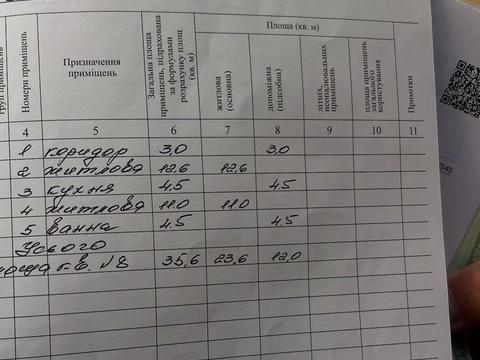 Площа (кв. м)
груп приміщень
Номери приміщень
Призначення
приміщень
Загальна площа
приміщень, підрахована
за формулами
розрахунку площ
(кв. м)
житлова
(основна)
допоміжна
(підсобна)
літніх,
неопалювальних
приміщень
площа приміщень
загального
користування
Примітки
4 5 6 7 8 9 10 11
1 коридор 3,0 3,0
2 житлова 12,6 12,6
3 кухня 4,5 4,5
4 житлова 11,0 11,0
5 ванна 4,5 4,5
Усього
кв. №8 35,6 23,6 12,0